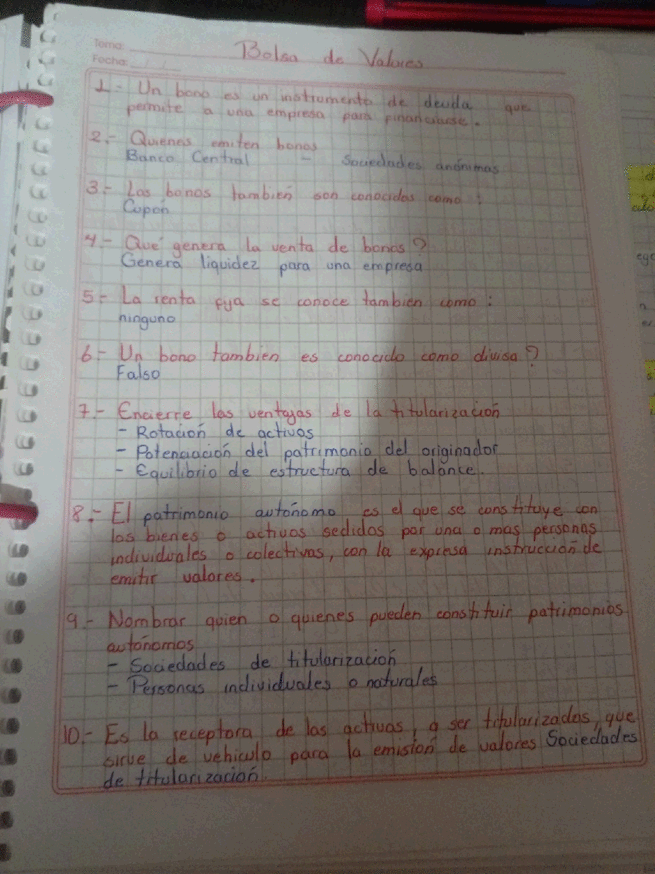 Tema: Bolsa de Valores
Fecha:
1.- Un bono es un instrumento de deuda que
permite a una empresa para financiarse.
2.- Quienes emiten bonos
Banco Central - Sociedades anónimas
3.- Los bonos también son conocidos como:
Cupón
4.- Qué genera la venta de bonos?
Genera liquidez para una empresa
5.- La renta fija se conoce tambien como:
ninguno
6.- Un bono tambien es conocido como divisa?
Falso
7.- Encierre las ventajas de la titularización
- Rotación de activos
- Potenciación del patrimonio del originador
- Equilibrio de estructura de balance.
8.- El patrimonio autónomo es el que se constituye con
los bienes o activos sedidos por una o mas personas
individuales o colectivas, con la expresa instrucción de
emitir valores.
9.- Nombrar quien o quienes pueden constituir patrimonios
autónomos
- Sociedades de titularización
- Personas individuales o naturales
10.- Es la receptora de los activos, a ser titularizados, que
sirve de vehiculo para la emisión de valores Sociedades
de titularización.